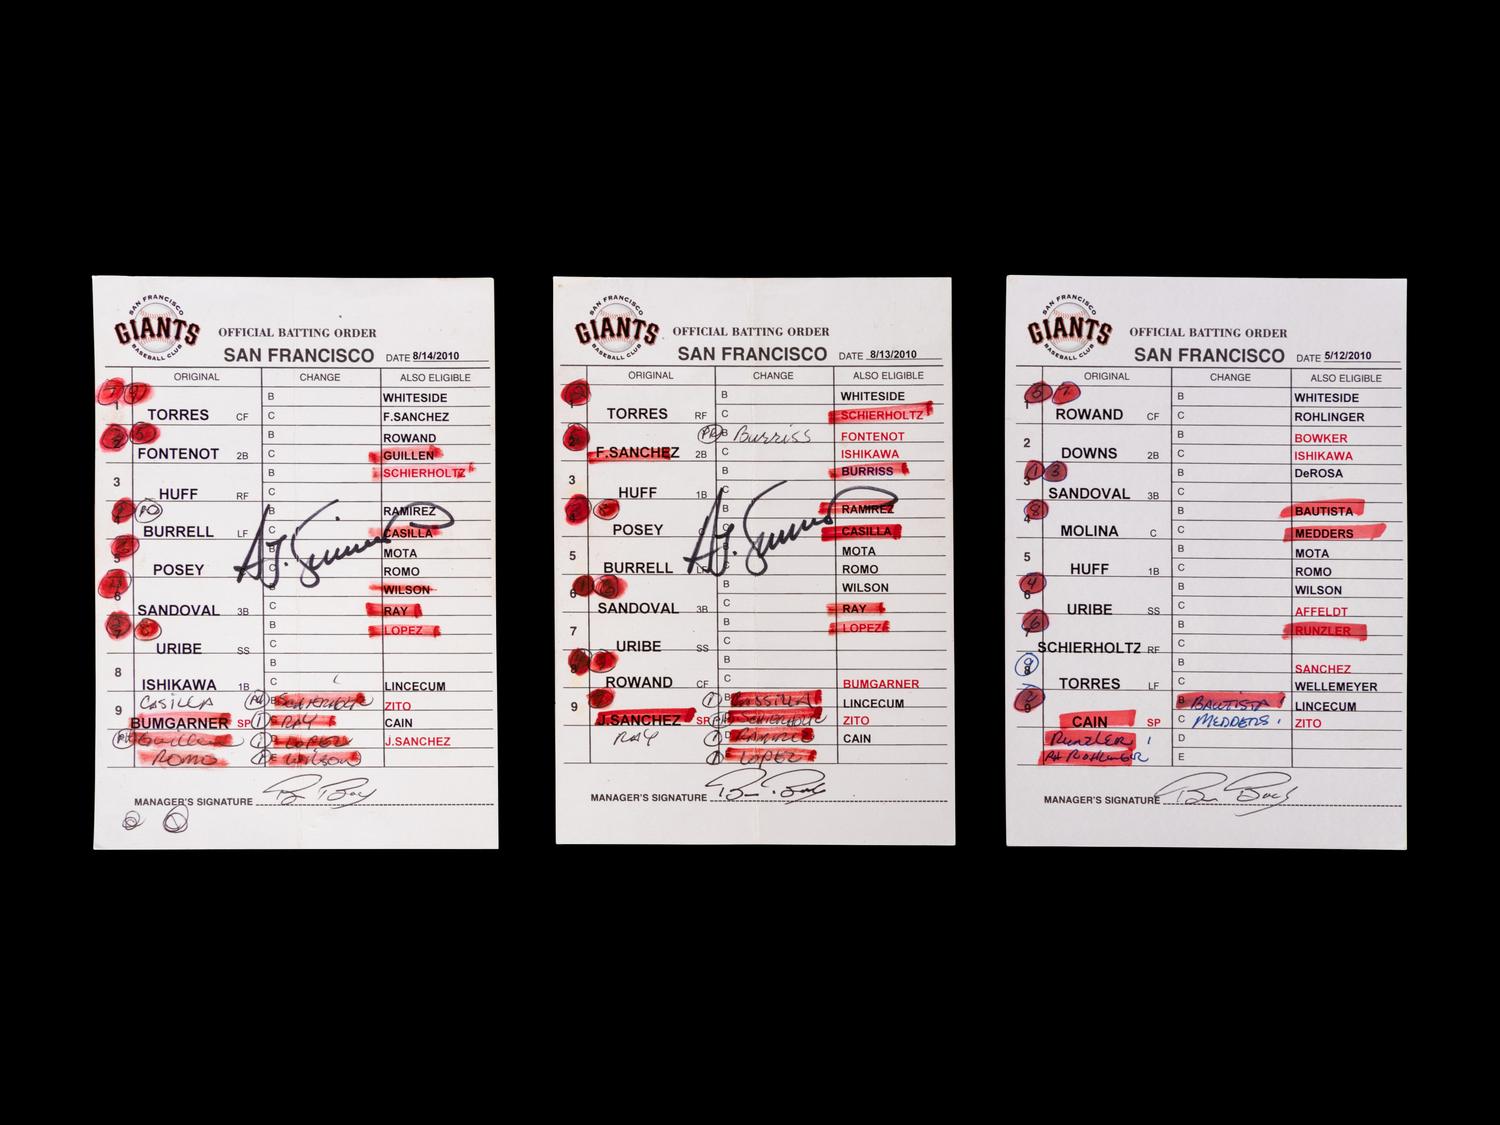 SAN FRANCISCO
GIANTS
BASEBALL CLUB
OFFICIAL BATTING ORDER
SAN FRANCISCO DATE 8/14/2010
ORIGINAL CHANGE ALSO ELIGIBLE
B WHITESIDE
1 TORRES CF C F.SANCHEZ
B ROWAND
2 FONTENOT 2B C GUILLEN
B SCHIERHOLTZ
3 HUFF RF C
B RAMIREZ
BURRELL LF C CASILLA
B MOTA
5 POSEY C ROMO
B WILSON
6 SANDOVAL 3B C RAY
B LOPEZ
7 URIBE SS C
B
8 ISHIKAWA 1B C LINCECUM
CASILLA PH B SCHIERHOLTZ ZITO
9 BUMGARNER SP 1 RAY CAIN
PH Guillen 1 LOPEZ J.SANCHEZ
ROMO E WILSON
MANAGER'S SIGNATURE
SAN FRANCISCO
GIANTS
BASEBALL CLUB
OFFICIAL BATTING ORDER
SAN FRANCISCO DATE 8/13/2010
ORIGINAL CHANGE ALSO ELIGIBLE
B WHITESIDE
1 TORRES RF C SCHIERHOLTZ
PR B Burriss FONTENOT
2 F.SANCHEZ 2B C ISHIKAWA
B BURRISS
3 HUFF 1B C
B RAMIREZ
4 POSEY C CASILLA
B MOTA
5 BURRELL LF C ROMO
B WILSON
6 SANDOVAL 3B C RAY
B LOPEZ
7 URIBE SS C
B
8 ROWAND CF C BUMGARNER
1 B CASSILLA LINCECUM
9 J.SANCHEZ SP PH SCHIERHOLTZ ZITO
RAY 1 D RAMIREZ CAIN
1 E LOPEZ
MANAGER'S SIGNATURE
SAN FRANCISCO
GIANTS
BASEBALL CLUB
OFFICIAL BATTING ORDER
SAN FRANCISCO DATE 5/12/2010
ORIGINAL CHANGE ALSO ELIGIBLE
B WHITESIDE
1 ROWAND CF C ROHLINGER
B BOWKER
2 DOWNS 2B C ISHIKAWA
B DeROSA
3 SANDOVAL 3B C
B BAUTISTA
4 MOLINA C C MEDDERS
B MOTA
5 HUFF 1B C ROMO
B WILSON
6 URIBE SS C AFFELDT
B RUNZLER
7 SCHIERHOLTZ RF C
B SANCHEZ
8 TORRES LF C WELLEMEYER
B BAUTISTA LINCECUM
9 CAIN SP C MEDDERS ZITO
RUNZLER D
PH ROHLINGER E
MANAGER'S SIGNATURE